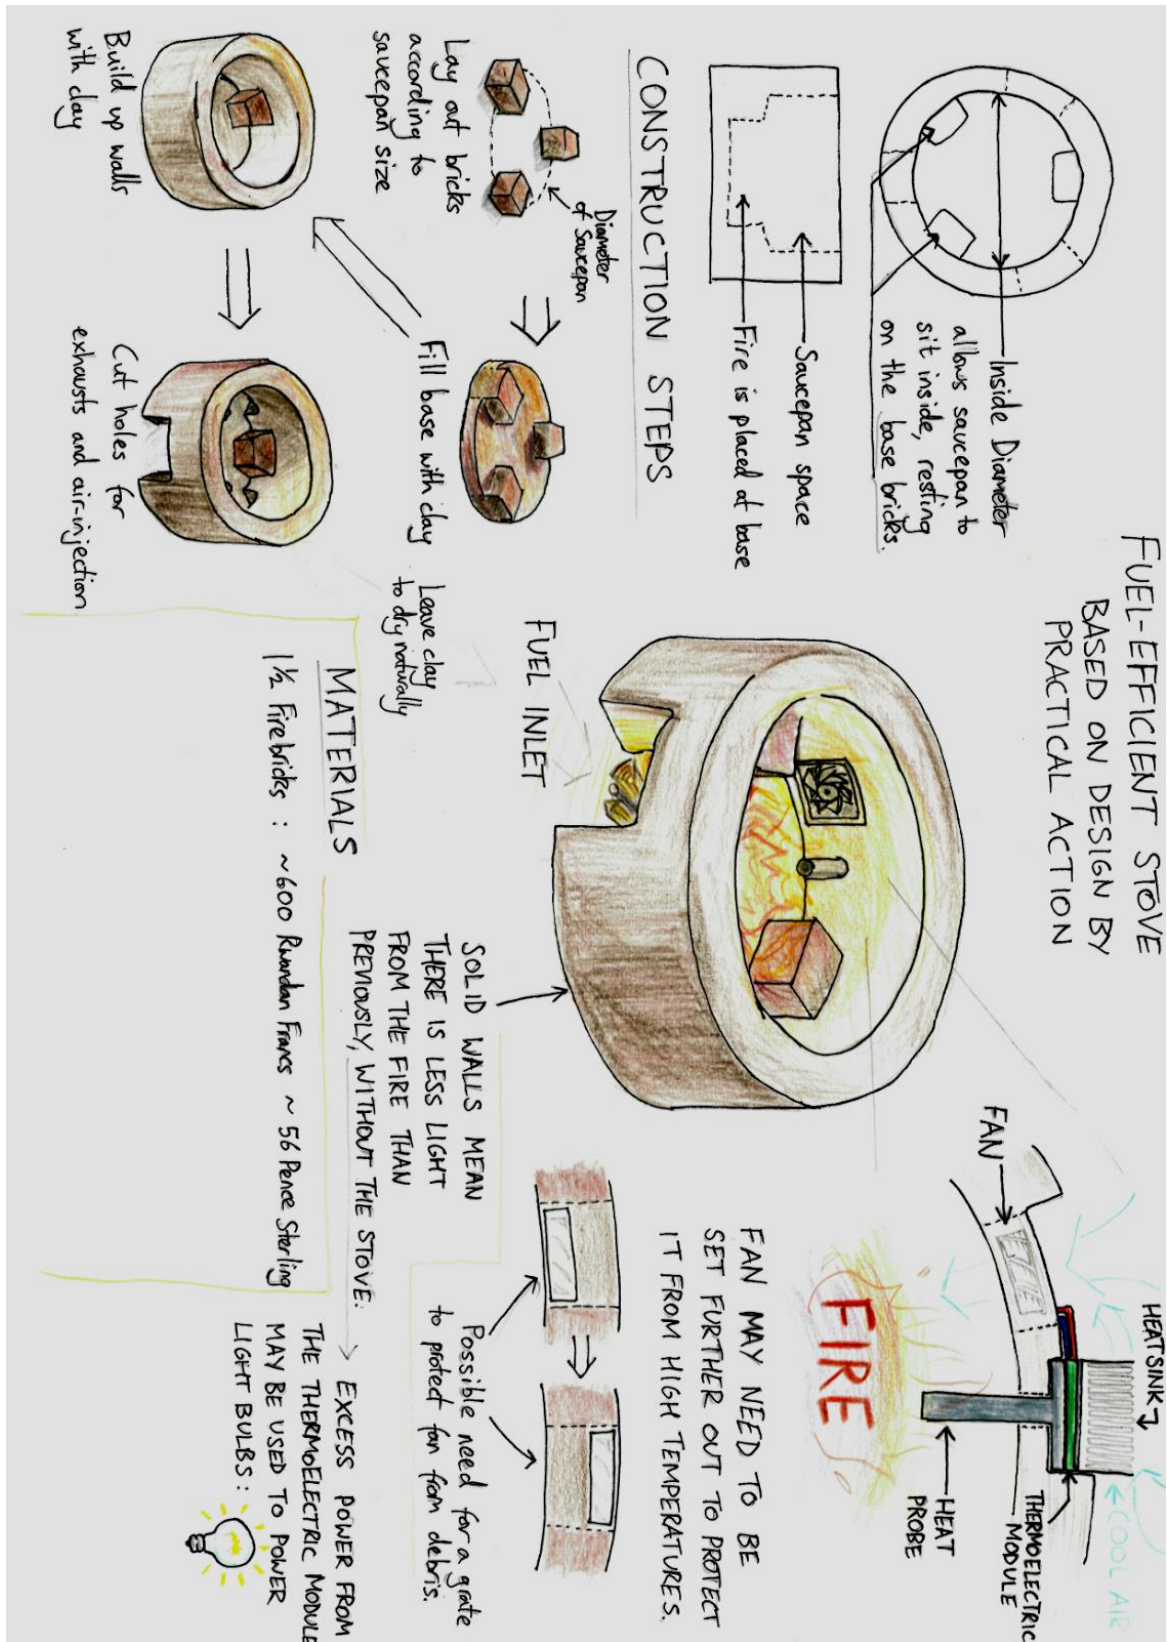 FUEL-EFFICIENT STOVE
BASED ON DESIGN BY
PRACTICAL ACTION
Inside Diameter
allows saucepan to
sit inside, resting
on the base bricks.
Saucepan space
Fire is placed at base
CONSTRUCTION STEPS
Diameter
of Saucepan
Lay out bricks
according to
saucepan size
Fill base with clay
Build up walls
with clay
Cut holes for
exhausts and air-injection
Leave clay
to dry naturally
FUEL INLET
MATERIALS
1½ Firebricks : ~600 Rwandan Francs ~ 56 Pence Sterling
SOLID WALLS MEAN
THERE IS LESS LIGHT
FROM THE FIRE THAN
PREVIOUSLY, WITHOUT THE STOVE.
HEATSINK
COOL AIR
FAN
FIRE
HEAT
PROBE
THERMOELECTRIC
MODULE
FAN MAY NEED TO BE
SET FURTHER OUT TO PROTECT
IT FROM HIGH TEMPERATURES.
Possible need for a grate
to protect fan from debris.
EXCESS POWER FROM
THE THERMOELECTRIC MODULE
MAY BE USED TO POWER
LIGHT BULBS :